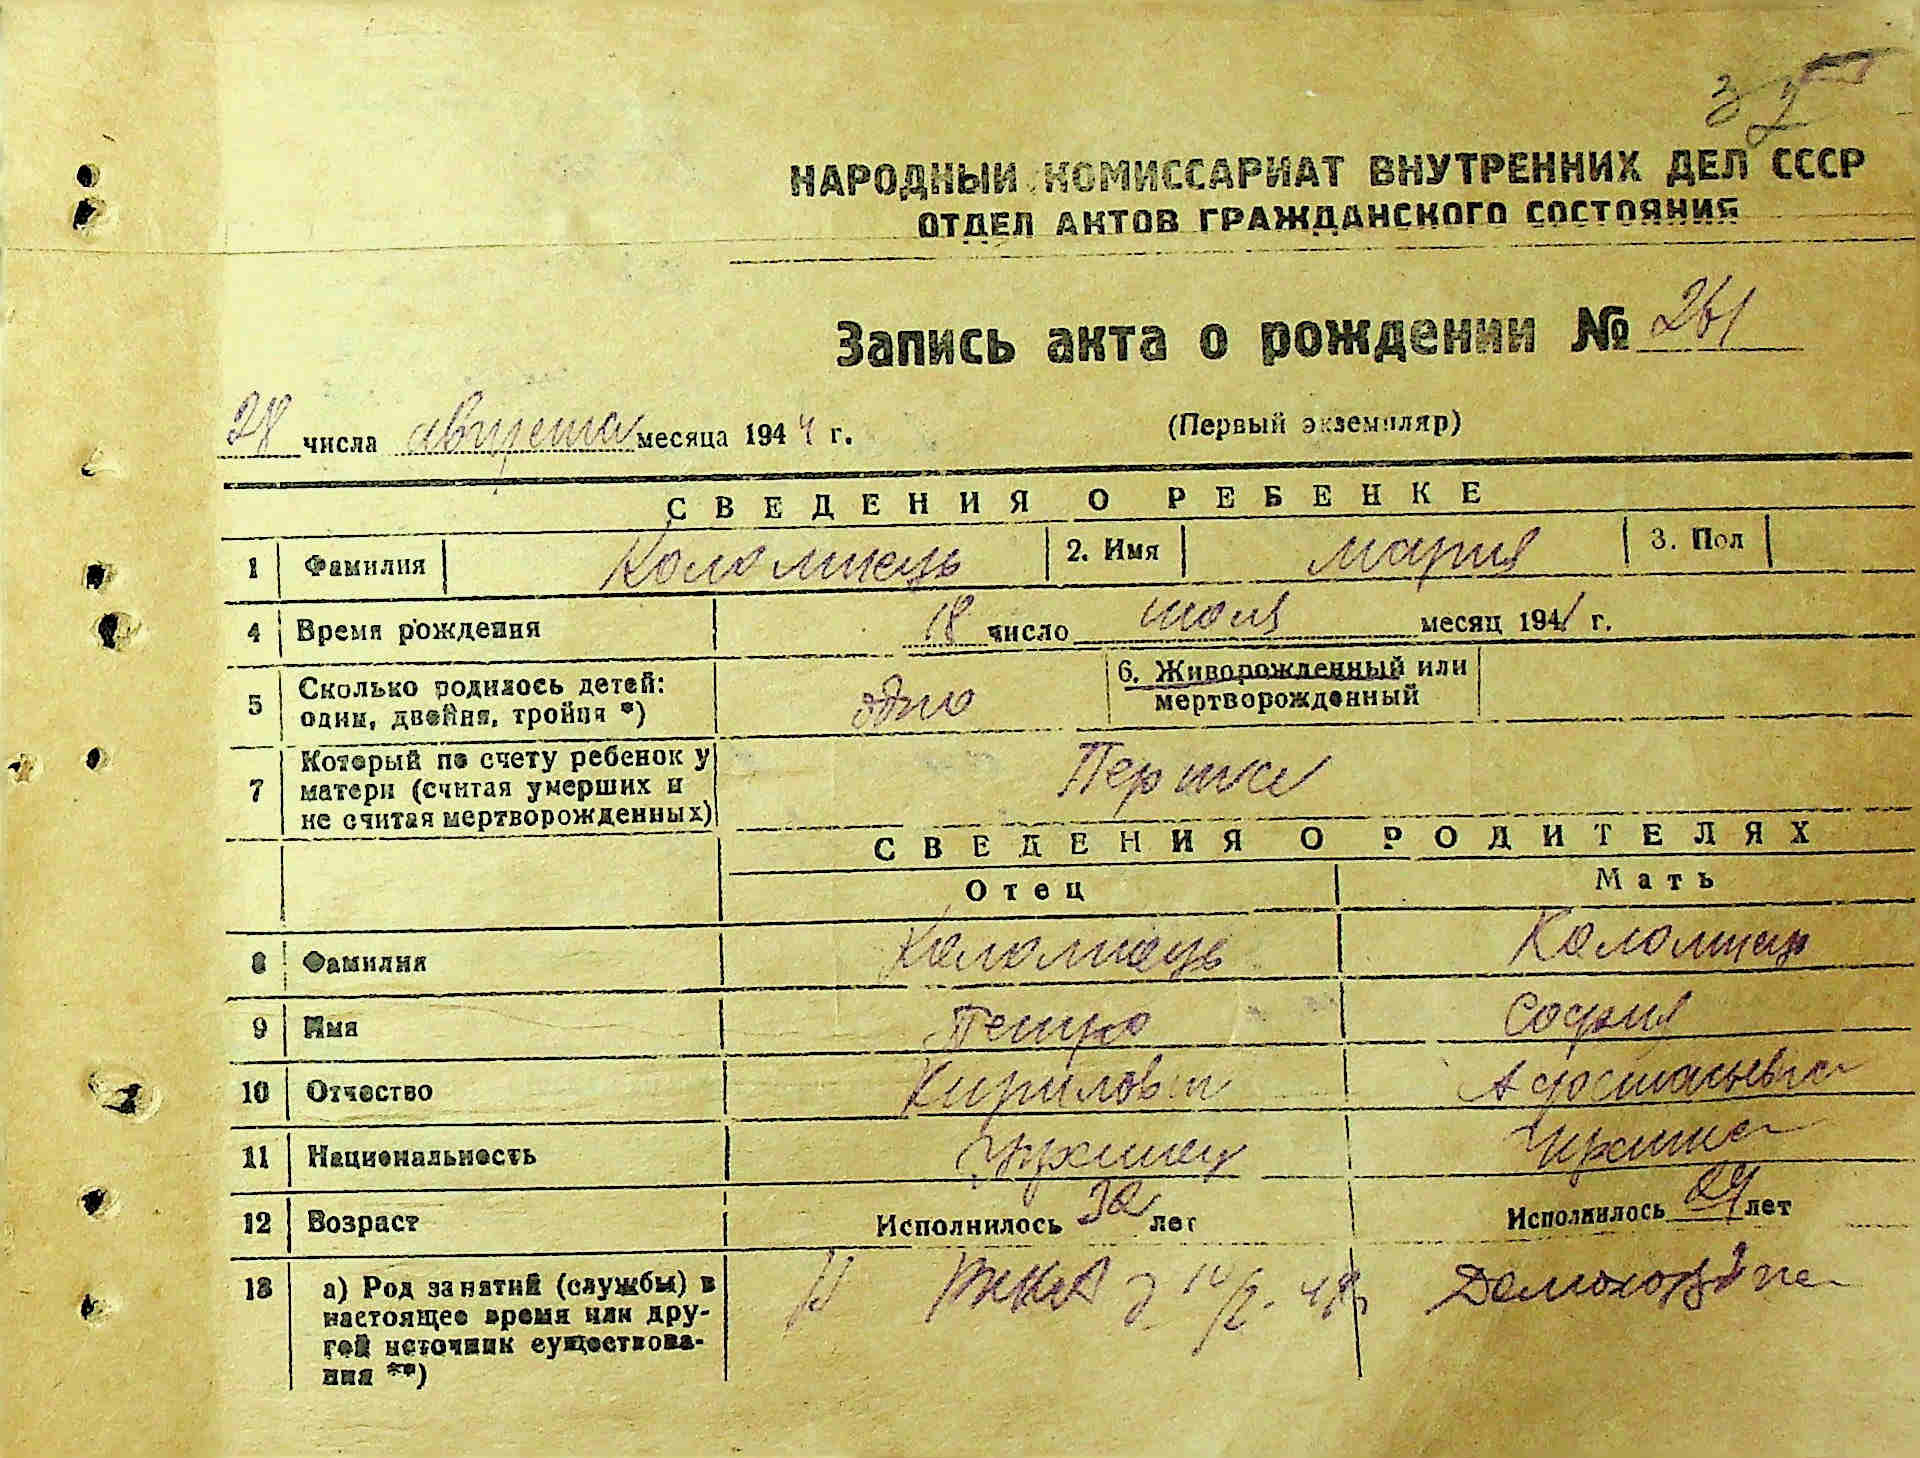 НАРОДНЫЙ КОМИССАРИАТ ВНУТРЕННИХ ДЕЛ СССР
ОТДЕЛ АКТОВ ГРАЖДАНСКОГО СОСТОЯНИЯ
Запись акта о рождении № 261
28 числа августа месяца 1944 г.
(Первый экземпляр)
СВЕДЕНИЯ О РЕБЕНКЕ
1 Фамилия Коломиець 2. Имя Мария 3. Пол
4 Время рождения 18 число июля месяц 1941 г.
5 Сколько родилось детей: одно 6. Живорожденный или
один, двойня, тройня *) мертворожденный
7 Который по счету ребенок у
матери (считая умерших и
не считая мертворожденных)
СВЕДЕНИЯ О РОДИТЕЛЯХ
Отец Мать
8 Фамилия Коломиець Коломиець
9 Имя Петро София
10 Отчество Кирилов
11 Национальность Украинец
12 Возраст Исполнилось 32 лет Исполнилось 24 лет
13 а) Род занятий (службы) в РККА Домохозяйка
настоящее время или дру-
гой источник существова-
ния **)